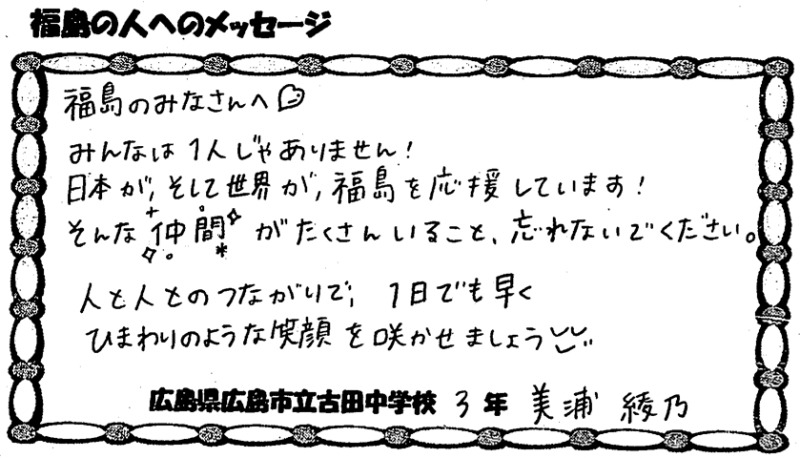 福島の人へのメッセージ
福島のみなさんへ
みんなは1人じゃありません!
日本が、そして世界が、福島を応援しています!
そんな仲間がたくさんいること、忘れないでください。
人と人とのつながりで、1日でも早く
ひまわりのような笑顔を咲かせましょう
広島県広島市立古田中学校 3年 美浦 綾乃